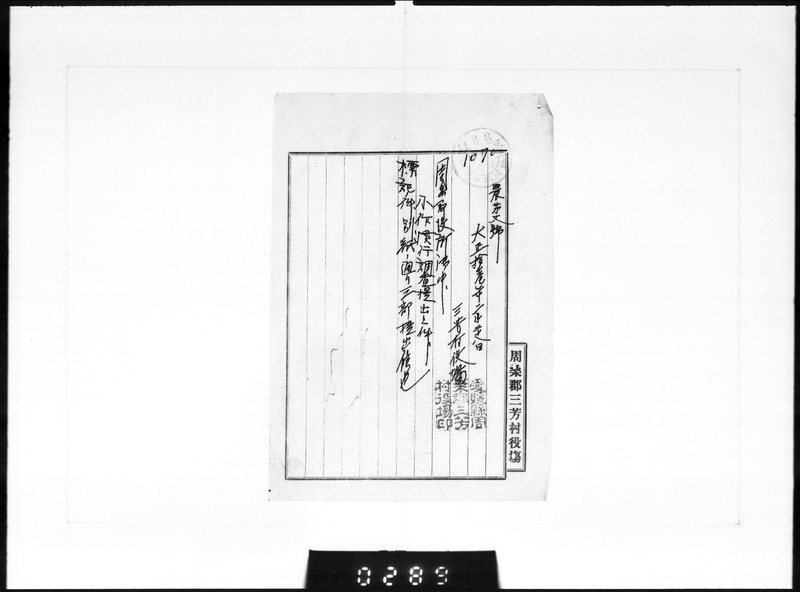 農第 號
大正拾壱年 月 日
三芳村役場
周桑郡役所御中
小作慣行調査提出之件
標記ノ件別紙ノ通リ三部提出候也
愛媛縣周
桑郡三芳
村役場印
周桑郡三芳村役場
1070
0289